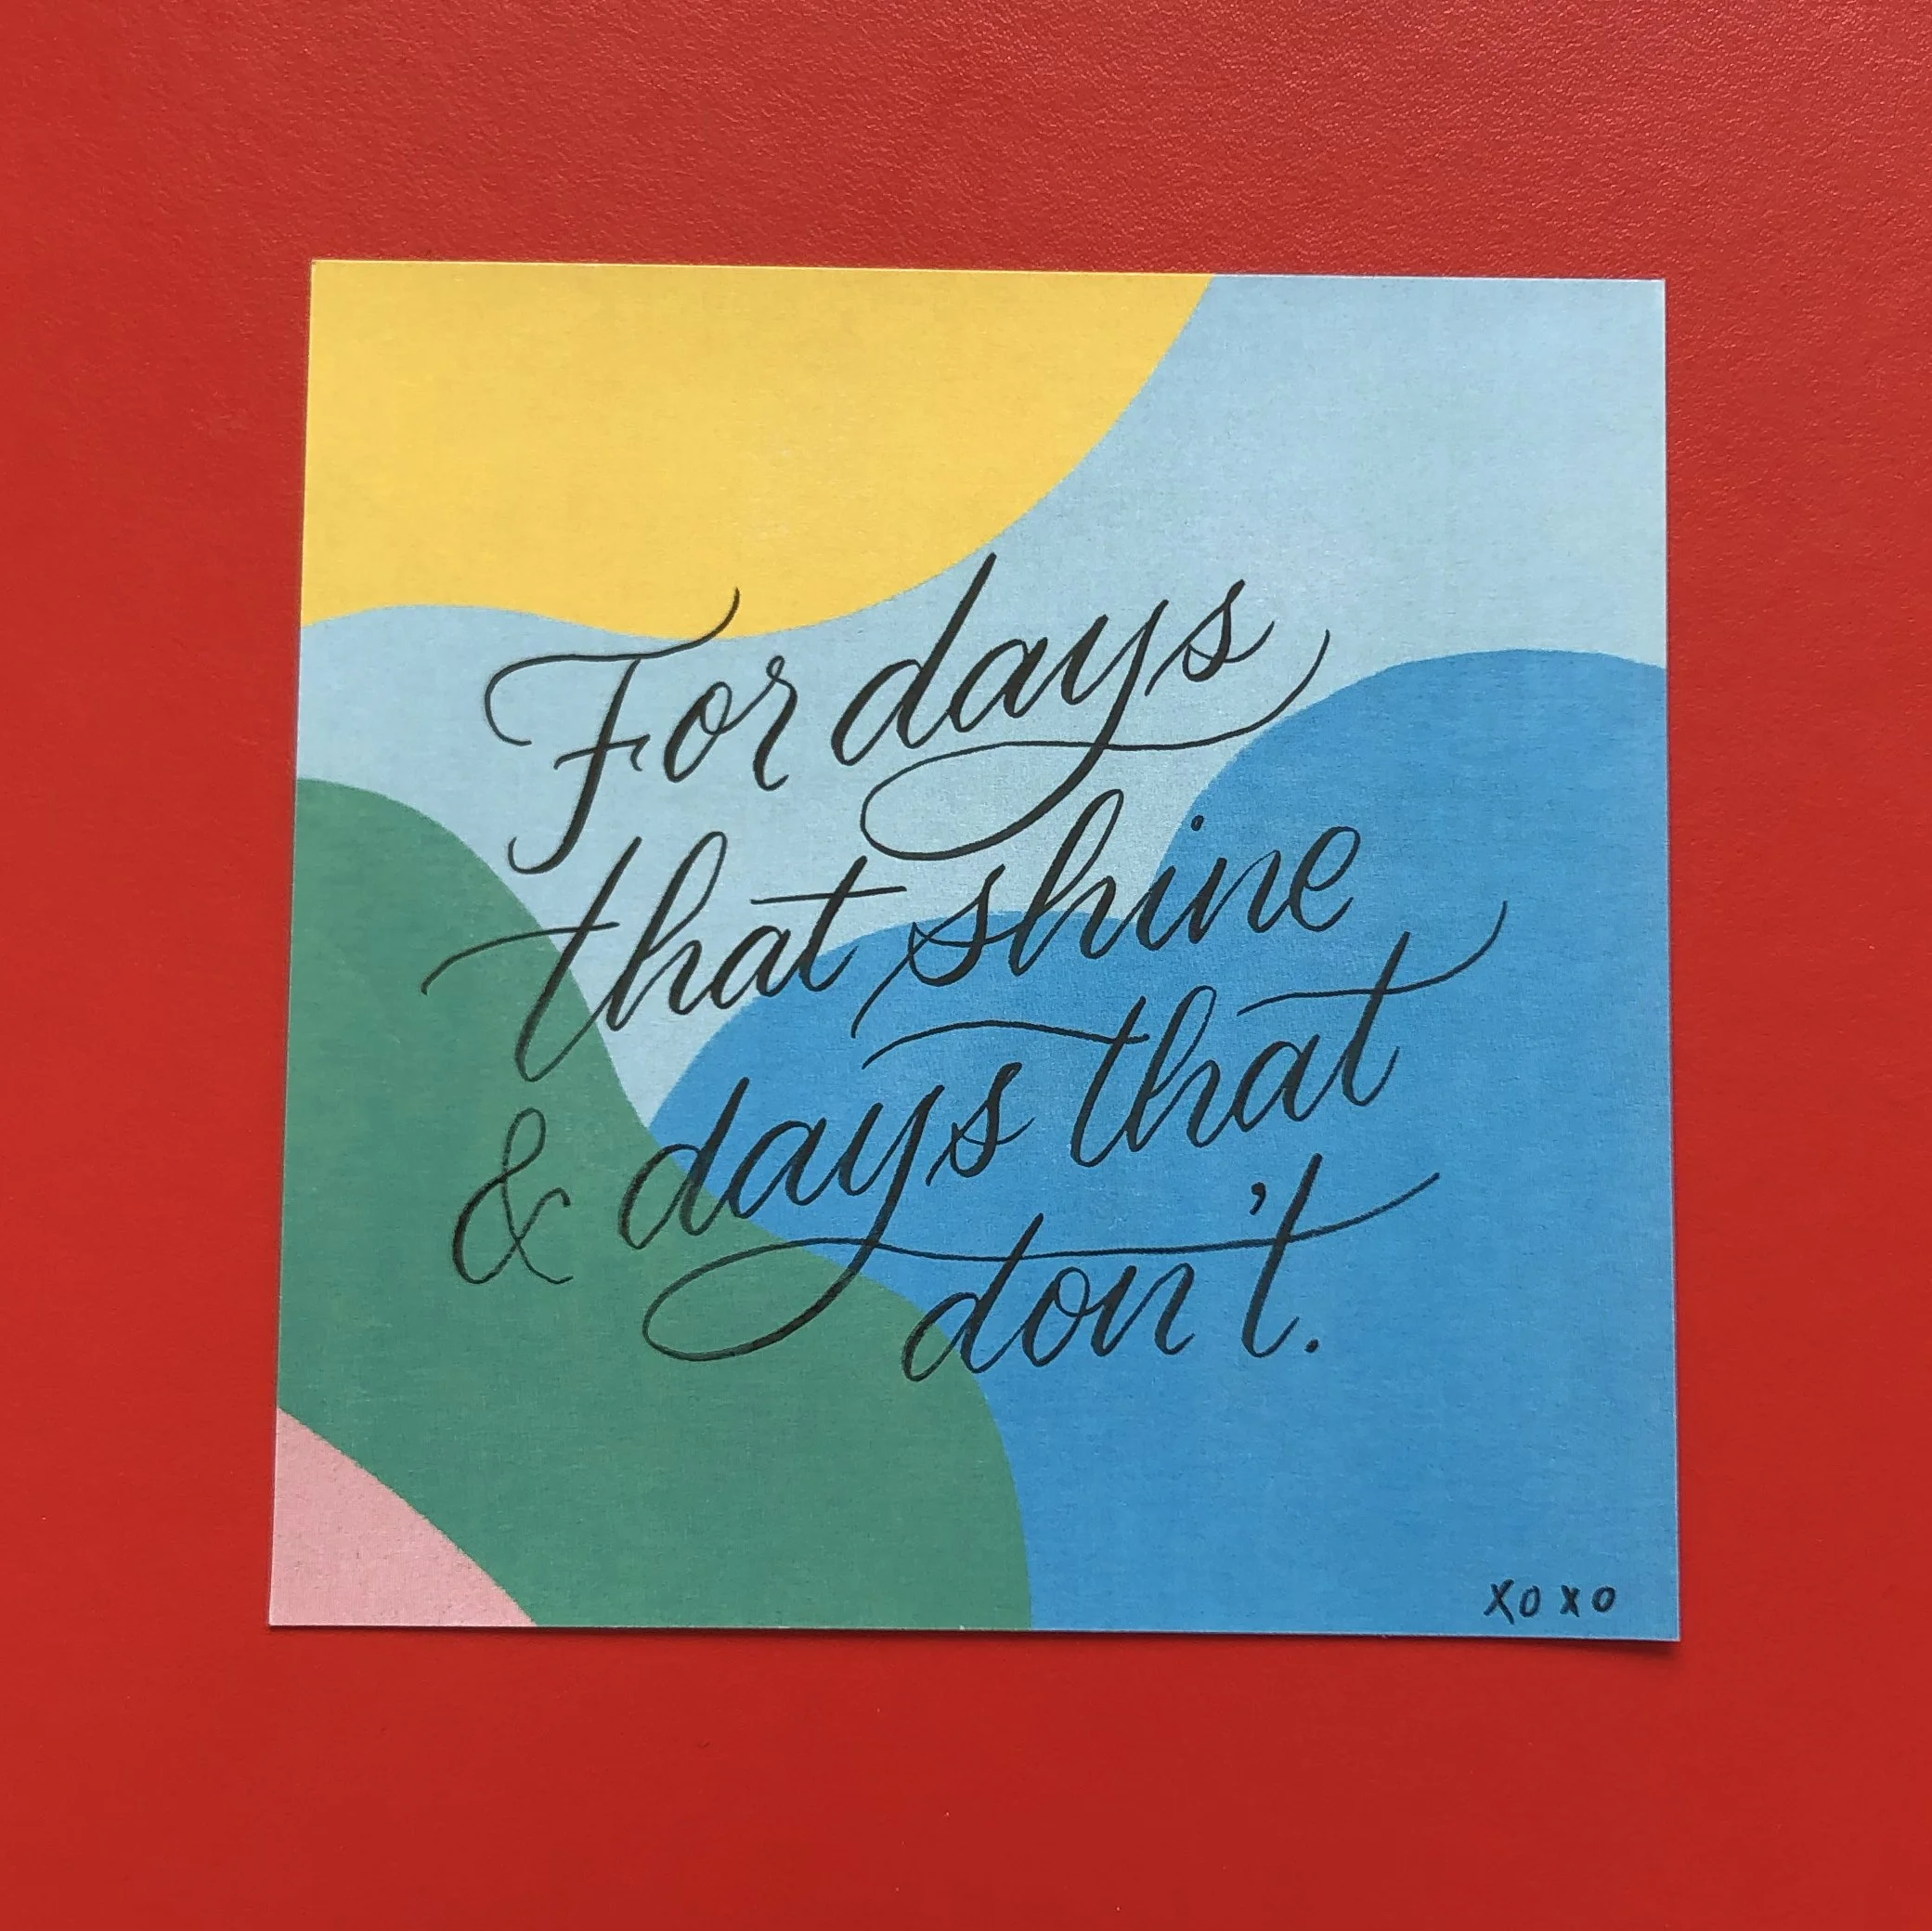 For days
that shine
& days that
don't.
xoxo